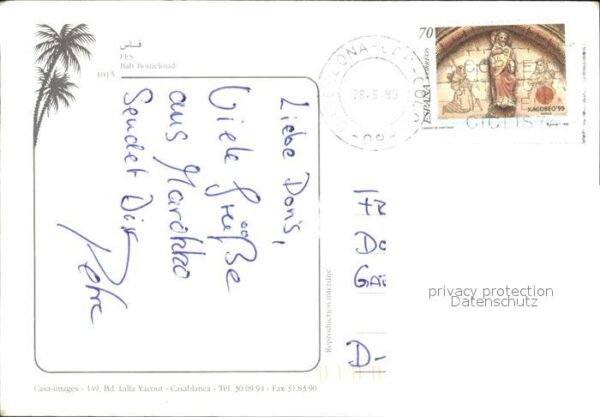 فاس
FES
Bab Boujeloud
1015
Liebe Doris,
Viele Grüße
aus Marokko
Sendet Dir
Petra
Reproduction interdite
Casa-images - 149, Bd. Lalla Yacout - Casablanca - Tél. 30.09.94 - Fax 31.83.90
BARCELONA
28-9-99
70
ESPAÑA
CORREOS
XACOBEO'99
CAMINO DE SANTIAGO
privacy protection
Datenschutz